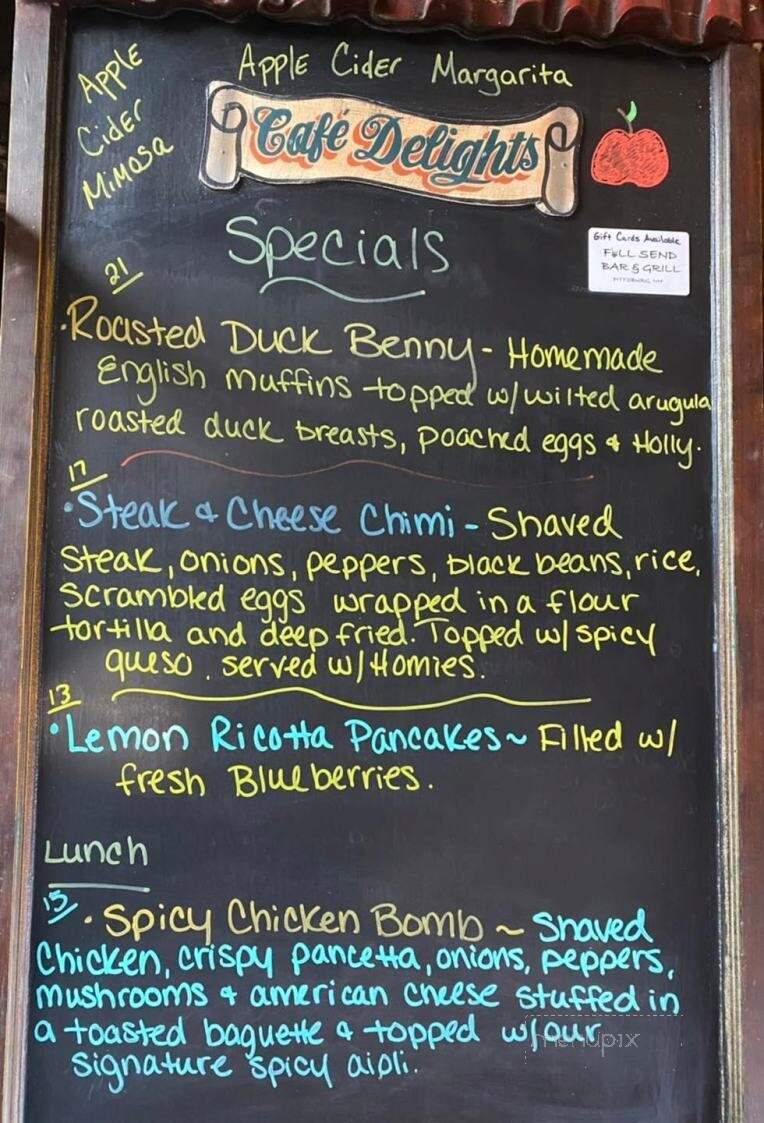 Apple Cider Margarita
Apple
Cider
Mimosa
Café Delights
Gift Cards Available
FULL SEND
BAR & GRILL
Specials
21
·Roasted Duck Benny - Homemade
English muffins topped w/ wilted arugula
roasted duck breasts, poached eggs & Holly.
17
·Steak & Cheese Chimi - Shaved
steak, onions, peppers, black beans, rice,
scrambled eggs wrapped in a flour
tortilla and deep fried. Topped w/ spicy
queso. served w/ Homies.
13
·Lemon Ricotta Pancakes ~ Filled w/
fresh Blueberries.
Lunch
15
·Spicy Chicken Bomb ~ Shaved
Chicken, crispy pancetta, onions, peppers,
mushrooms & american cheese stuffed in
a toasted baguette & topped w/ our
signature spicy aioli.
menupix